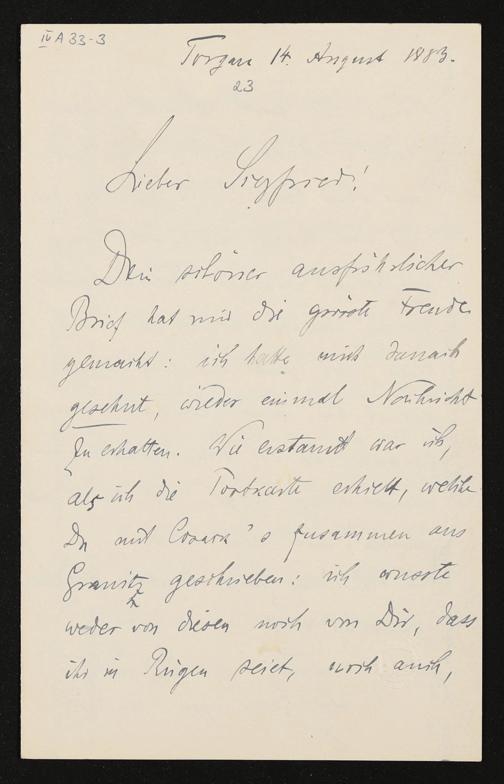 IV A 33-3
Torgau 14. August 1883.
23
Lieber Siegfried!
Dein schöner ausführlicher
Brief hat mir die grösste Freude
gemacht: ich hatte mich danach
gesehnt, wieder einmal Nachricht
zu erhalten. Wie erstaunt war ich,
als ich die Postkarte erhielt, welche
Du mit 's zusammen aus
Granitz geschrieben: ich wusste
weder von diesen noch von Dir, dass
ihr in Rügen seiet, noch auch,